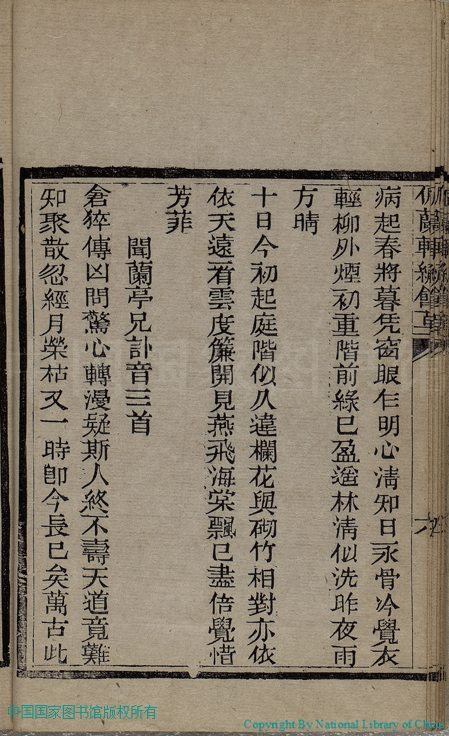 病起春將暮凭窗眼乍明心淸知日永骨冷覺衣
輕柳外煙初重階前綠已盈遥林淸似洗昨夜雨
方晴
十日今初起庭階似久違欄花與砌竹相對亦依
依天遠看雲度簾開見燕飛海棠飄已盡倍覺惜
芳菲
聞蘭亭兄訃音三首
倉猝傳凶問驚心轉漫疑斯人終不壽天道竟難
知聚散忽經月榮枯又一時卽今長已矣萬古此
中国国家图书馆版权所有
Copyright By National Library of China